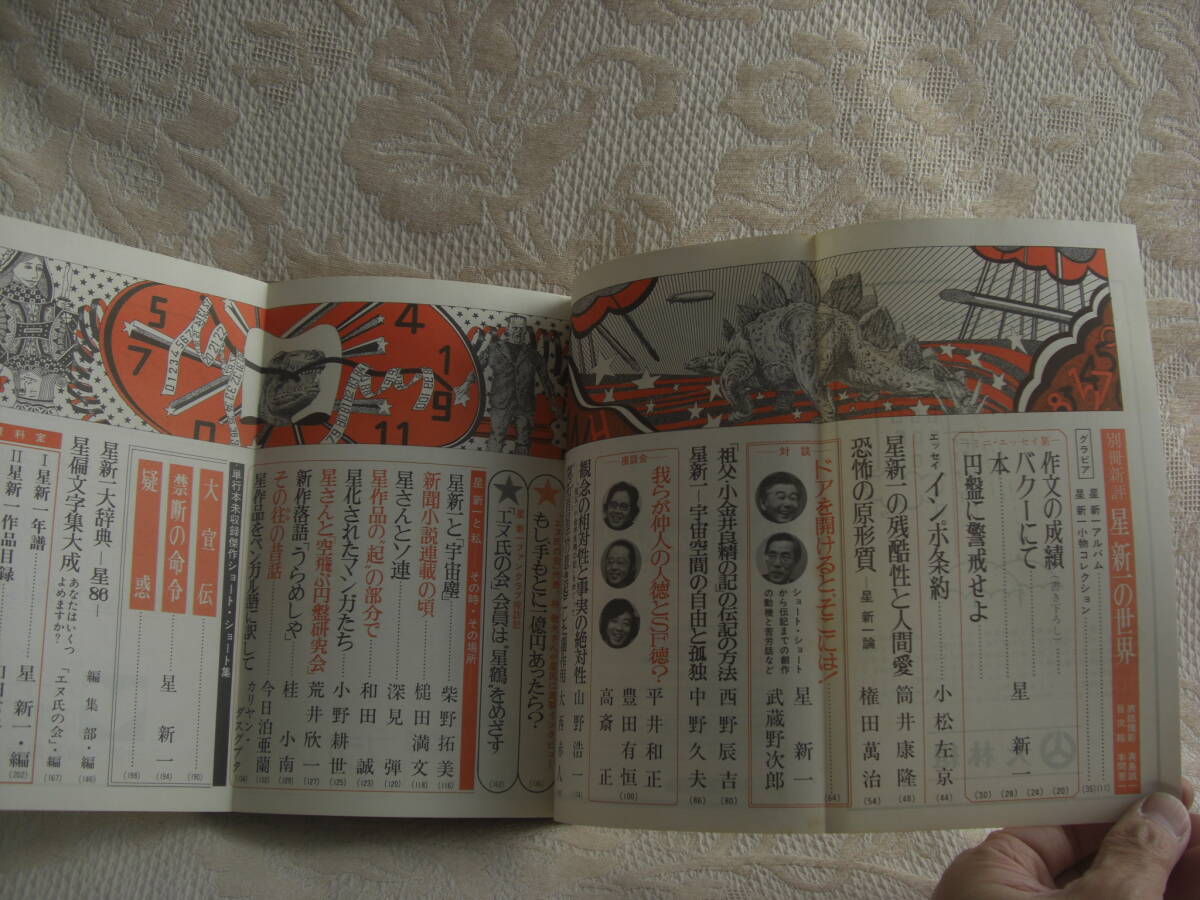 別冊新評 星新一の世界
グラビア
星新一アルバム
星新一小物コレクション
(11)
(35)
ミニ・エッセイ集
作文の成績(書き下ろし)
(20)
バクーにて
(24)
本
星新一
(28)
円盤に警戒せよ
(30)
エッセイ
インポ条約
小松左京
(44)
星新一の残酷性と人間愛
筒井康隆
(48)
恐怖の原形質
星新一論
権田萬治
(54)
ドアを開けると、そこには!
(64)
対談
ショート・ショート
から伝記までの創作
の動機と苦労話など
星新一
武蔵野次郎
『祖父・小金井良精の記』の伝記の方法
西野辰吉
(80)
星新一―宇宙空間の自由と孤独
中野久夫
(86)
座談会
我らが仲人の人徳とSF徳?
平井和正
豊田有恒
高斎正
(100)
観念の相対性と事実の絶対性
山野浩一
もし、手もとに一億円あったら?
「エヌ氏の会」会員は“星鶴”をめざす
星新一と私
その時・その場所
星新一と、「宇宙塵」
柴野拓美
(116)
新聞小説連載の頃
槌田満文
(118)
星さんとソ連
深見弾
(120)
星作品の“起”の部分で
和田誠
(123)
星化されたマンガたち
小野耕世
(125)
星さんと空飛ぶ円盤研究会
荒井欣一
(127)
新作落語「うらめしや」
桂小南
(129)
その往の昔話
今日泊亜蘭
(132)
星作品をベンガル語に訳して
カリヤン・ダスグプタ
単行本未収録傑作ショート・ショート集
大宣伝
(90)
禁断の命令
星新一
(94)
疑惑
(98)
星新一大辞典―星86―
編集部・編
(146)
星偏文字集大成
あなたはいくつ
よめますか?
「エヌ氏の会」・編
(167)
I星新一年譜
II星新一作品目録
星新一・編
(202)